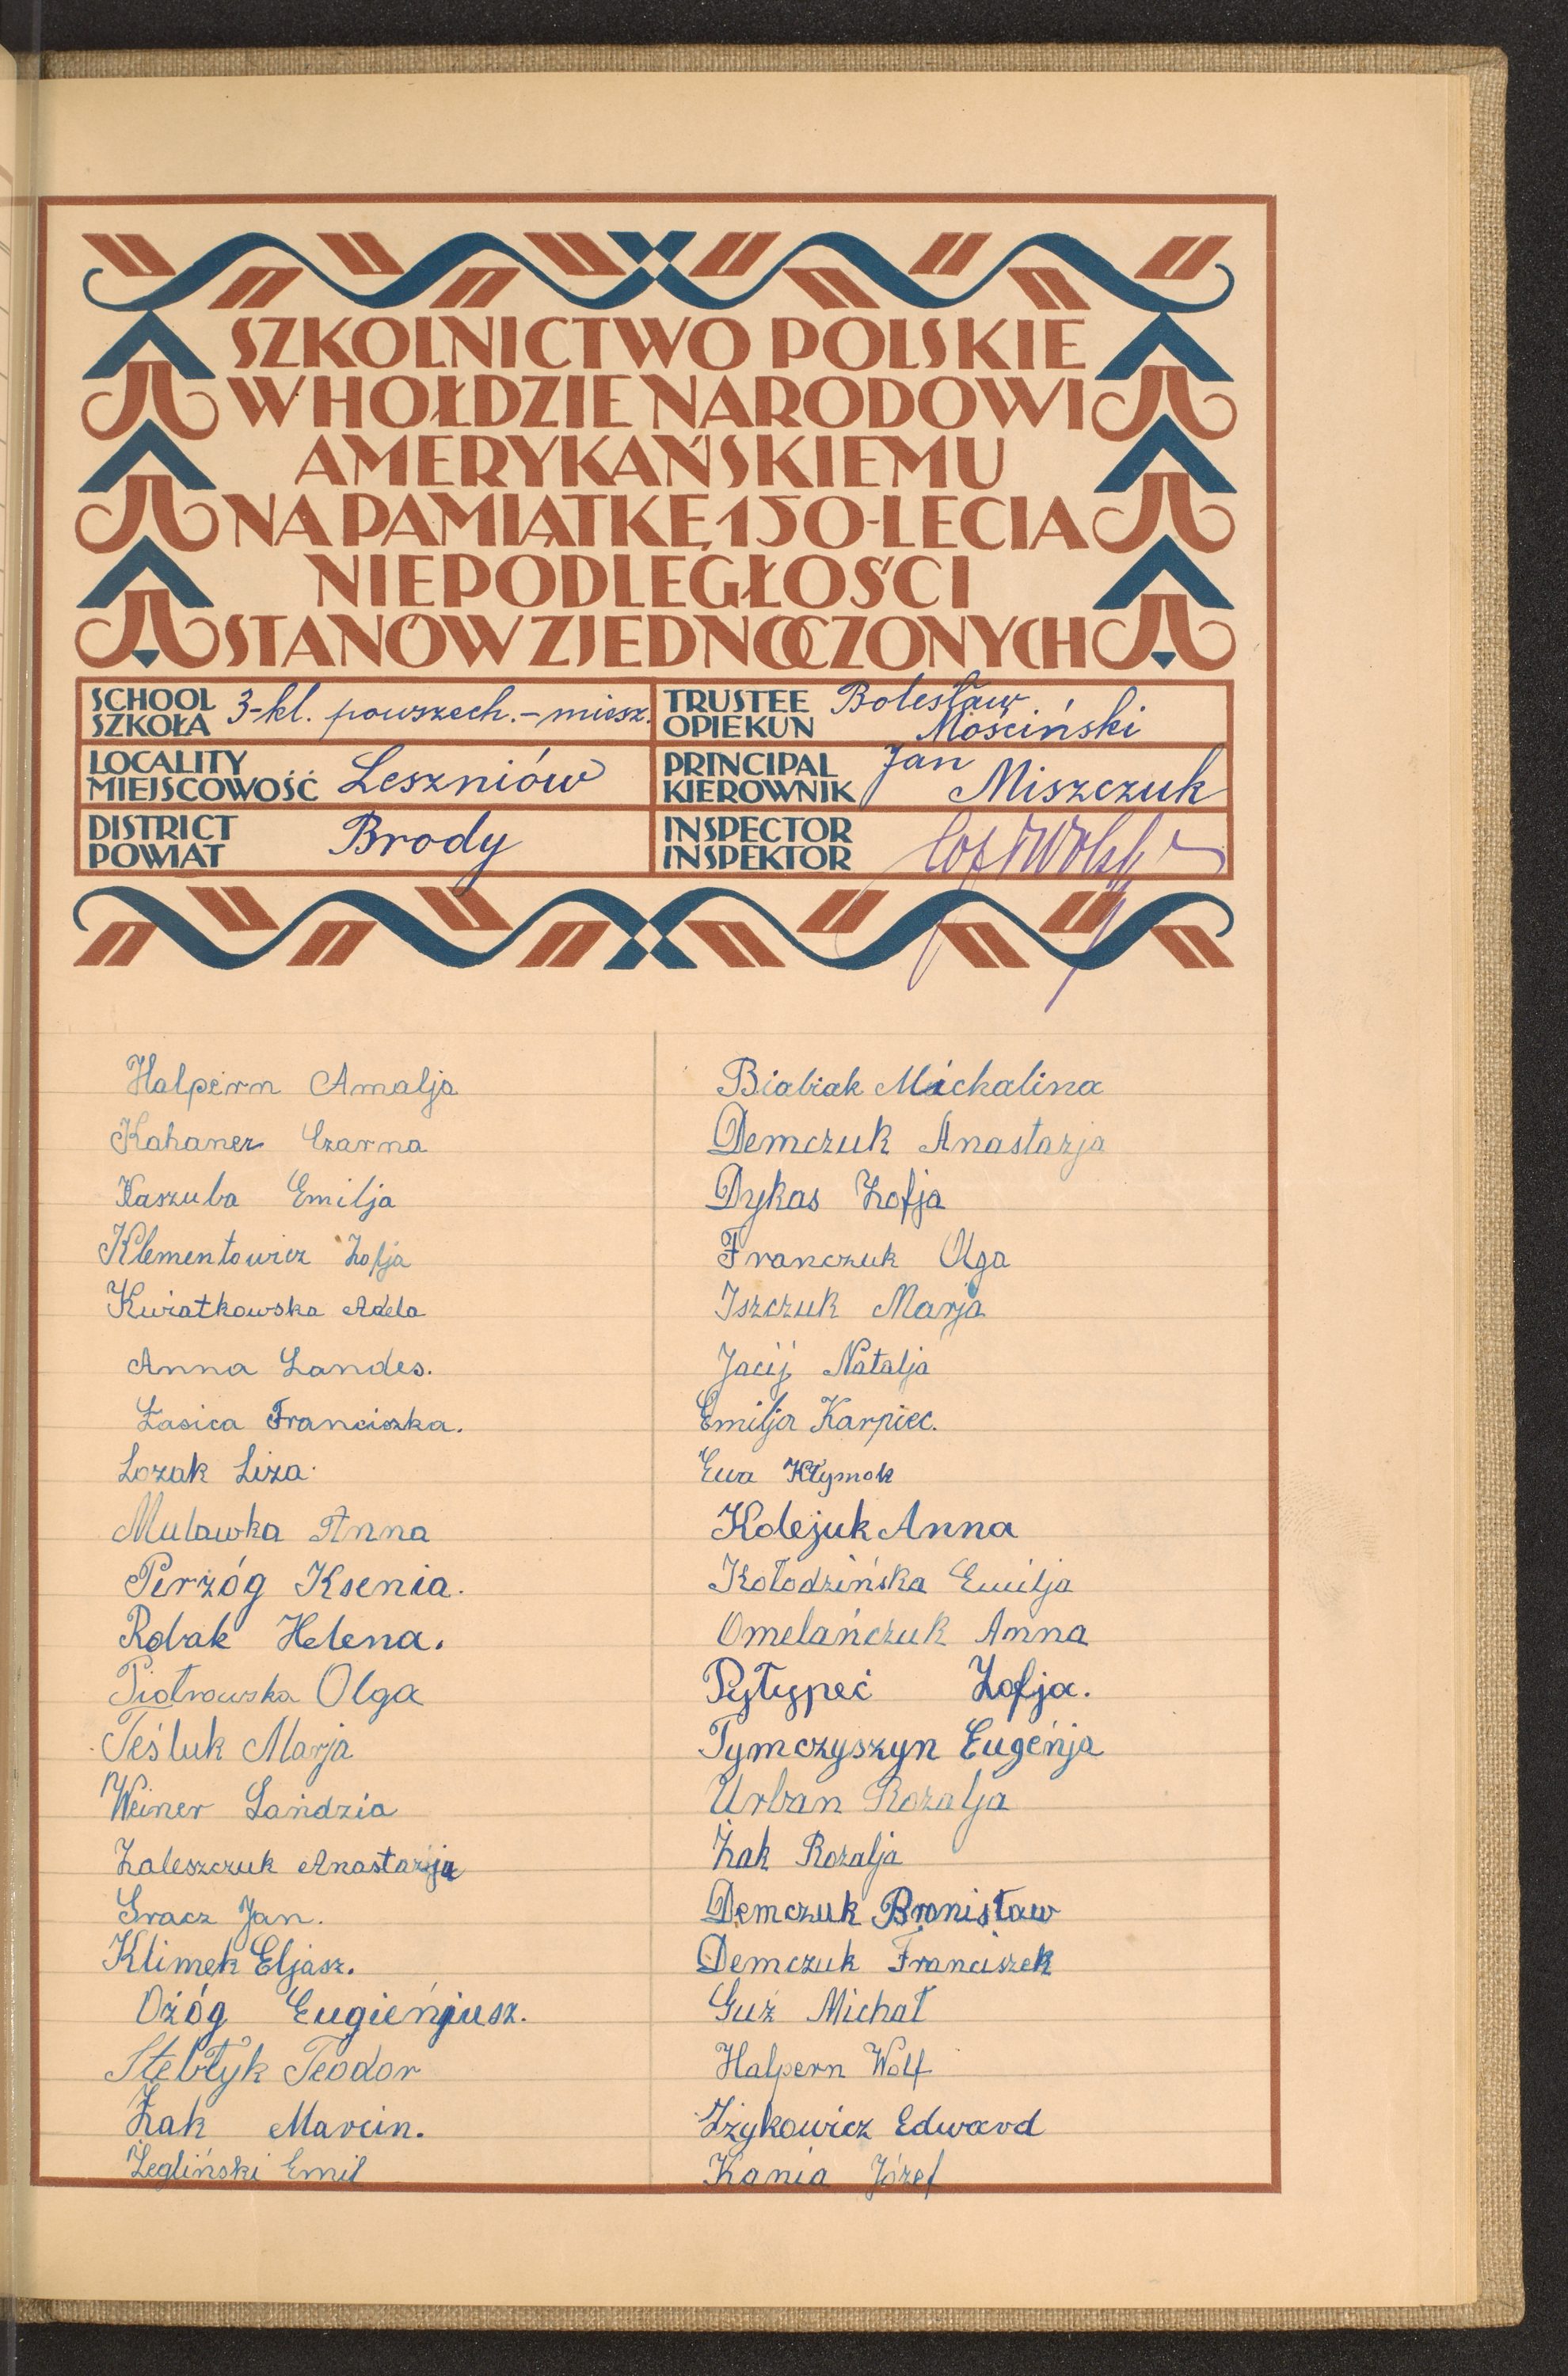 SZKOLNICTWO POLSKIE
W HOŁDZIE NARODOWI
AMERYKAŃSKIEMU
NA PAMIĄTKĘ 150-LECIA
NIEPODLEGŁOŚCI
STANÓW ZJEDNOCZONYCH
SCHOOL
SZKOŁA
3-kl. powszech.-miesz.
TRUSTEE
OPIEKUN
Bolesław
Mościński
LOCALITY
MIEJSCOWOŚĆ
Leszniów
PRINCIPAL
KIEROWNIK
Jan
Miszczuk
DISTRICT
POWIAT
Brody
INSPECTOR
INSPEKTOR
Halpern Amalja
Kahaner Czarna
Kaszuba Emilja
Klementowicz Zofja
Kwiatkowska Adela
Anna Landes.
Łasica Franciszka.
Lozak Liza.
Mulawka Anna
Perzóg Ksenia.
Robak Helena.
Piotrowska Olga
Teśluk Marja
Weiner Łańdzia
Zaleszczuk Anastazja
Gracz Jan.
Klimek Eljasz.
Ożóg Eugieńjusz.
Stebłyk Teodor
Żak Marcin.
Żegliński Emil
Biabiak Michalina
Demczuk Anastazja
Dykas Zofja
Franczuk Olga
Iszczuk Marja
Jacij Natalja
Emilja Karpiec.
Ewa Kłymok
Kolejuk Anna
Kołodzińska Emilja
Omelańczuk Anna
Pyłypeć Zofja.
Tymczyszyn Eugeńja
Urban Rozalja
Żak Rozalja
Demczuk Bronisław
Demczuk Franciszek
Guź Michał
Halpern Wolf
Iżykowicz Edward
Kania Józef